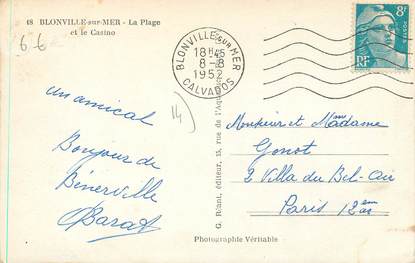 18 BLONVILLE-sur-MER - La Plage
et le Casino
6 6
BLONVILLE SUR MER
18H45
8-8
1952
CALVADOS
8F
POSTES
RF
un amical
Bonjour de
Bénerville
Barat
14
G. Réant, éditeur, 15, rue de l'Aqueduc
Monsieur et Madame
Gonot
2 Villa du Bel-Air
Paris 12em
Photographie Véritable